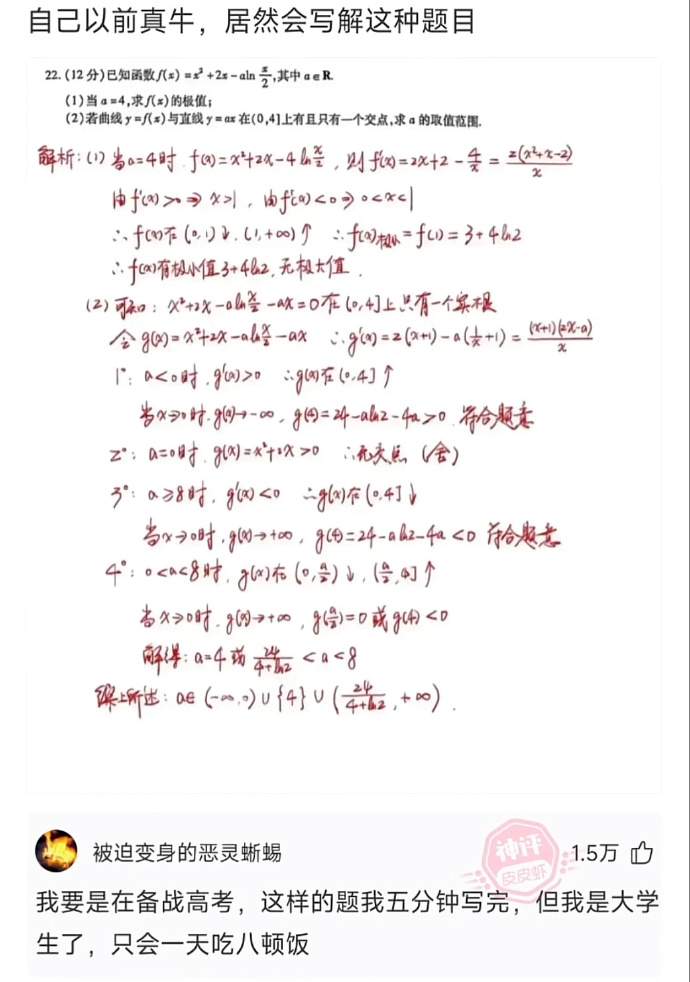 自己以前真牛，居然会写解这种题目
22.(12分)已知函数f(x)=x²+2x-aln x/2,其中a∈R.
(1)当a=4,求f(x)的极值;
(2)若曲线y=f(x)与直线y=ax在(0,4]上有且只有一个交点,求a的取值范围.
解析:(1)当a=4时.f(x)=x²+2x-4ln x/2, 则f'(x)=2x+2-4/x=2(x²+x-2)/x
由f'(x)>0⇒x>1, 由f'(x)<0⇒0<x<1
∴f(x)在(0,1)↓.(1,+∞)↑ ∴f(x)极小=f(1)=3+4ln2
∴f(x)有极小值3+4ln2,无极大值.
(2)可知: x²+2x-aln x/2-ax=0在(0,4]上只有一个实根
令g(x)=x²+2x-aln x/2-ax ∴g'(x)=2(x+1)-a(1/x+1)=(x+1)(2x-a)/x
1°: a<0时.g'(x)>0 ∴g(x)在(0,4]↑
当x→0时.g(x)→-∞, g(4)=24-aln2-4a>0 符合题意
2°: a=0时.g(x)=x²+2x>0 ∴无交点 (舍)
3°: a≥8时, g'(x)<0 ∴g(x)在(0,4]↓
当x→0时,g(x)→+∞, g(4)=24-aln2-4a<0 符合题意
4°: 0<a<8时, g(x)在(0,a/2)↓,(a/2,4]↑
当x→0时.g(x)→+∞, g(a/2)=0或g(4)<0
解得: a=4或 24/(4+ln2)<a<8
综上所述: a∈(-∞,0)∪{4}∪(24/(4+ln2),+∞).
被迫变身的恶灵蜥蜴
神评
皮皮虾
1.5万
我要是在备战高考，这样的题我五分钟写完，但我是大学
生了，只会一天吃八顿饭